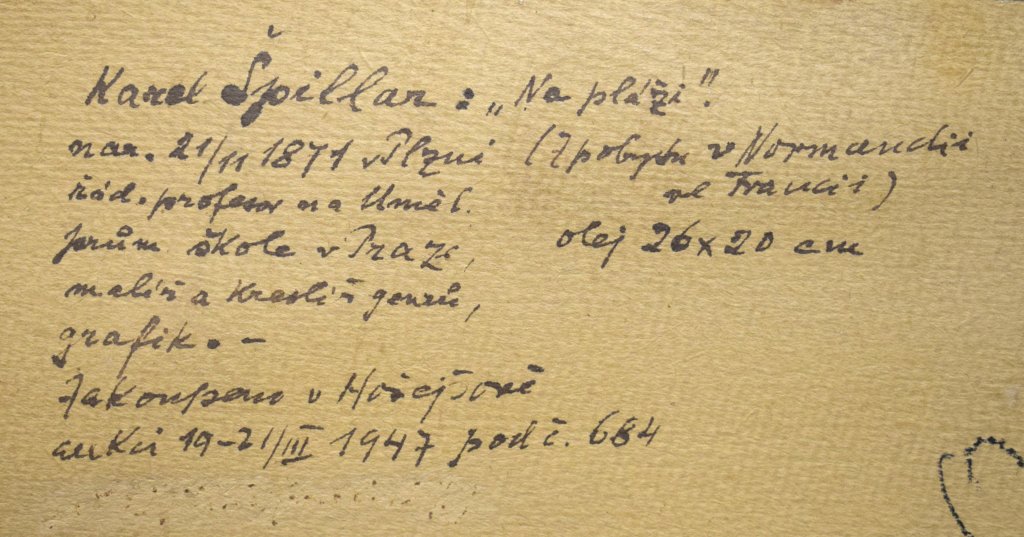 Karel Špillar : „Na pláži".
nar. 21/11 1871 v Plzni
(Z pobytu v Normandii
ve Francii)
řád. profesor na Uměl.
prům škole v Praze,
olej 26 x 20 cm
malíř a kreslíř genrů,
grafik. –
Zakoupeno v Hořejšově
aukci 19-21/III 1947 pod č. 684